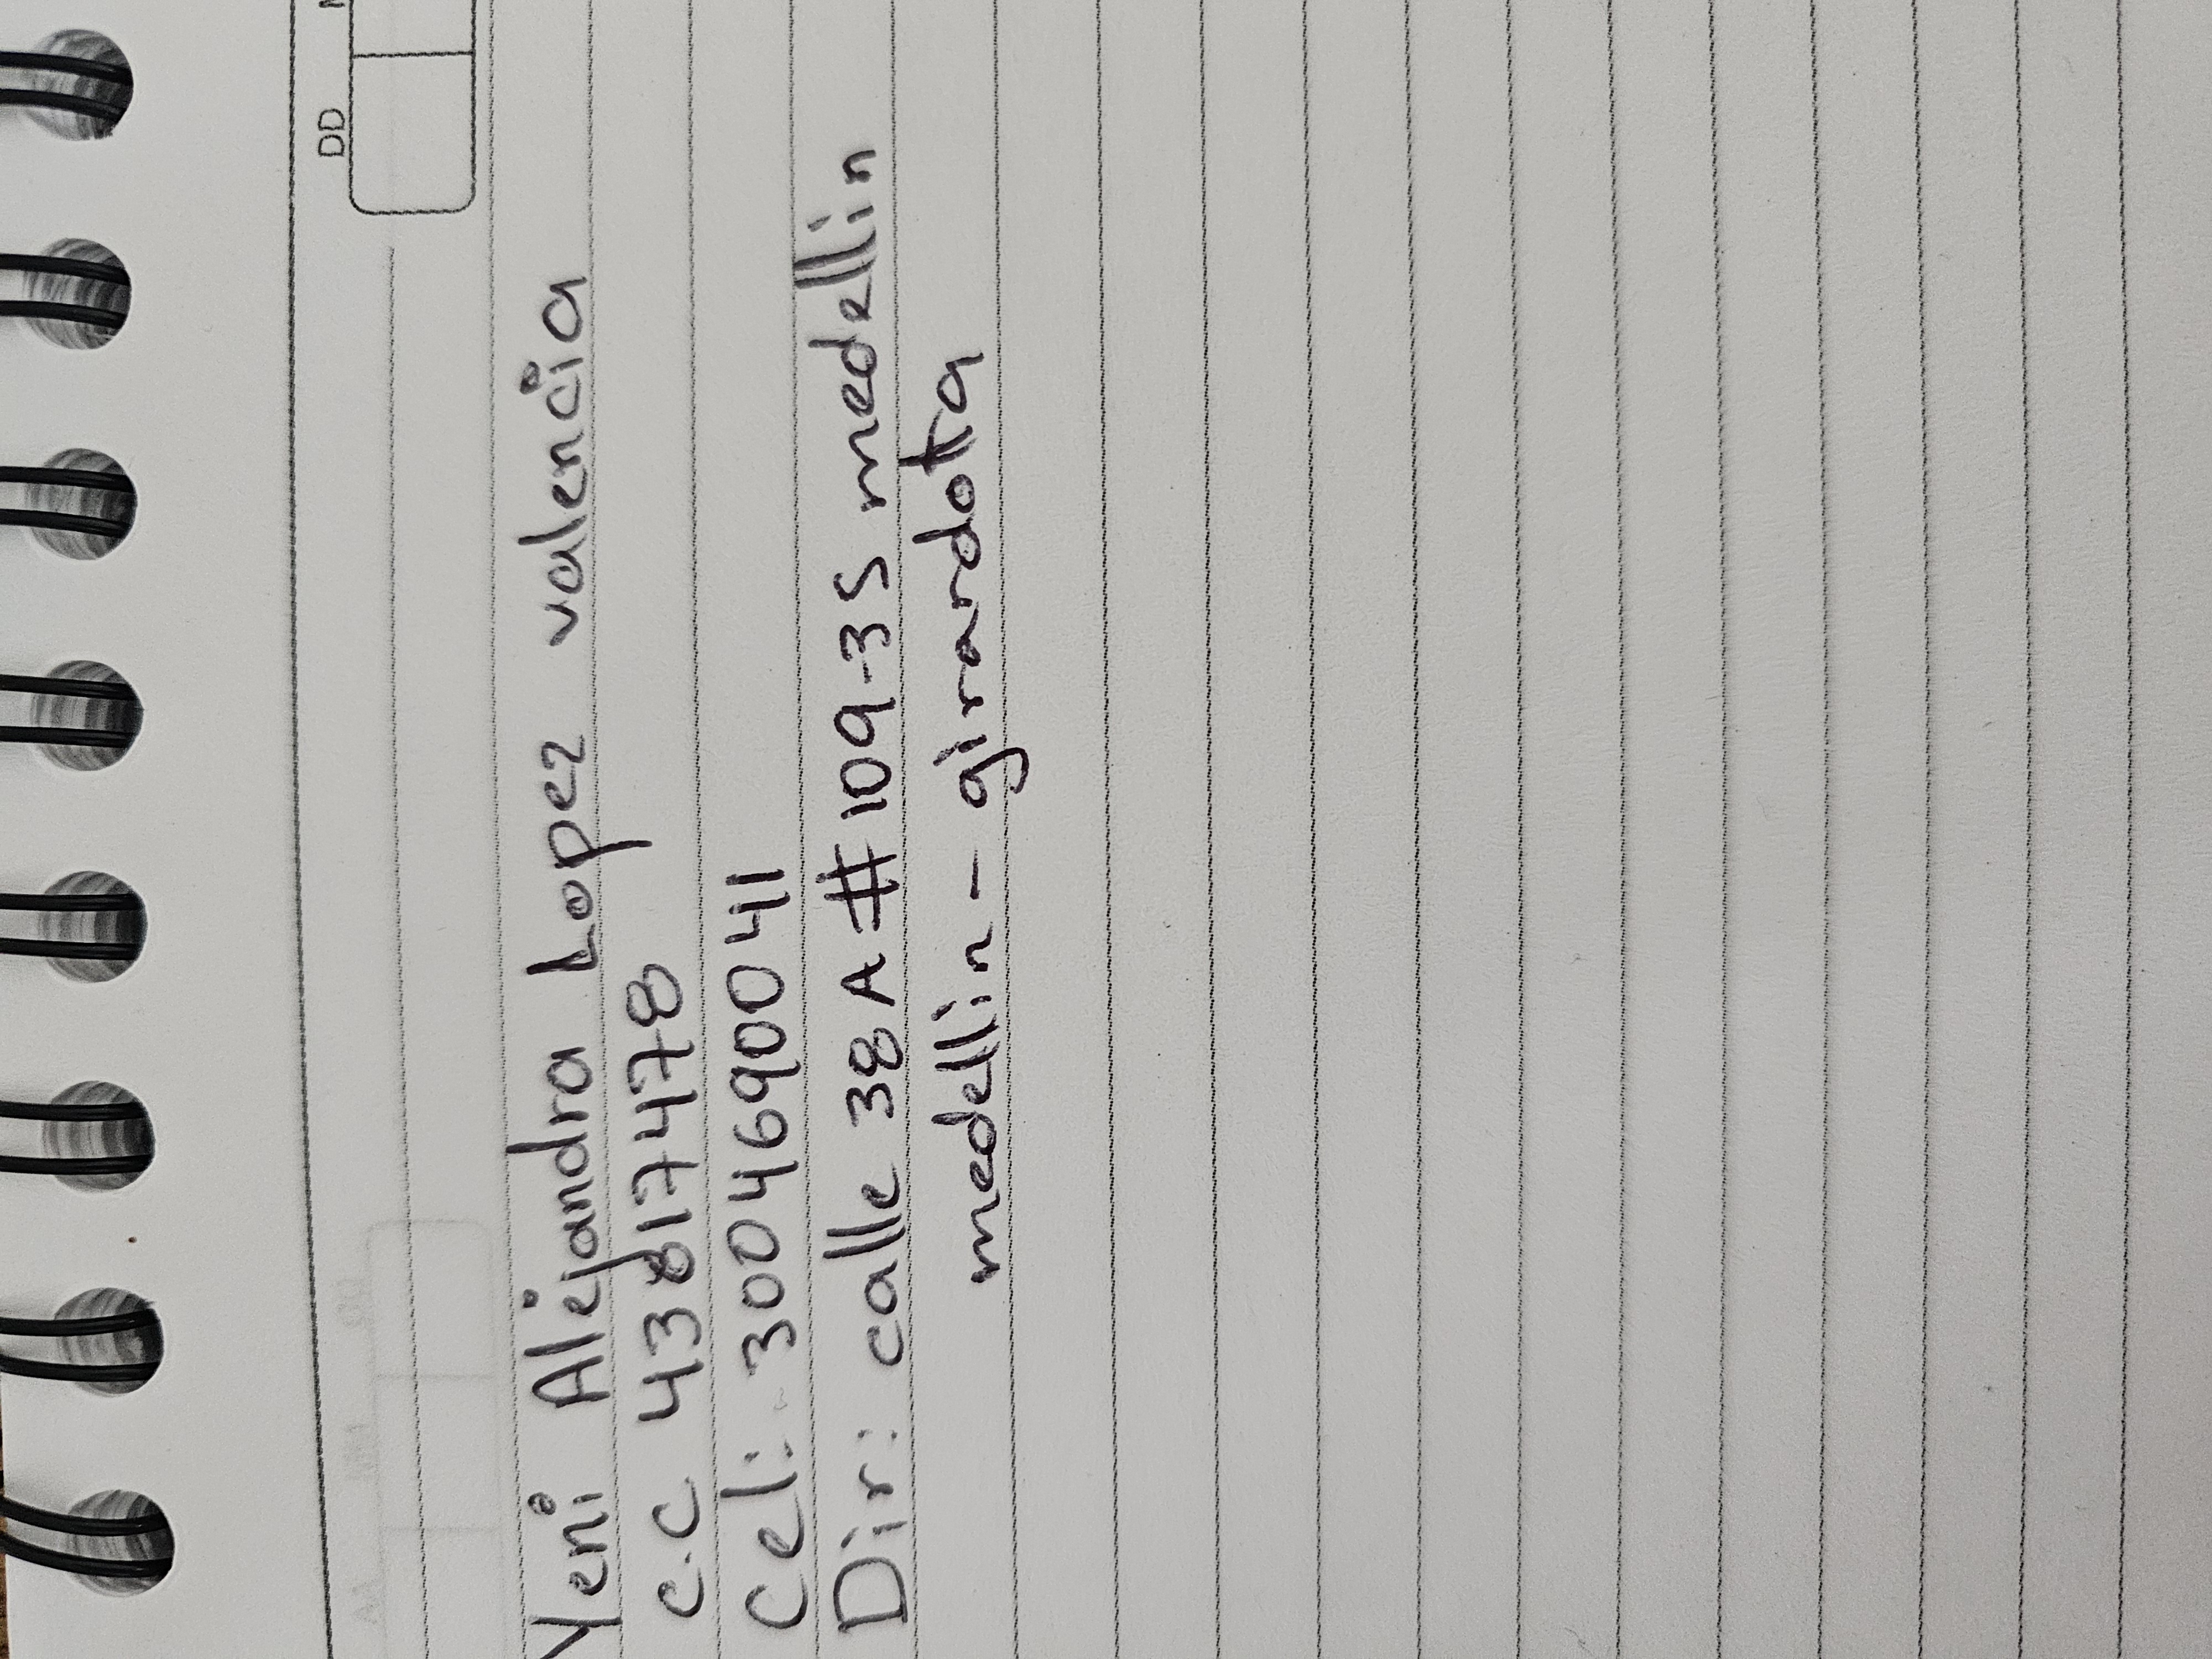 DD
Yeni Alejandra Lopez valencia
c.c 43817478
Cel: 3004690041
Dir: calle 38A #109-35 medellin
medellin - girardota